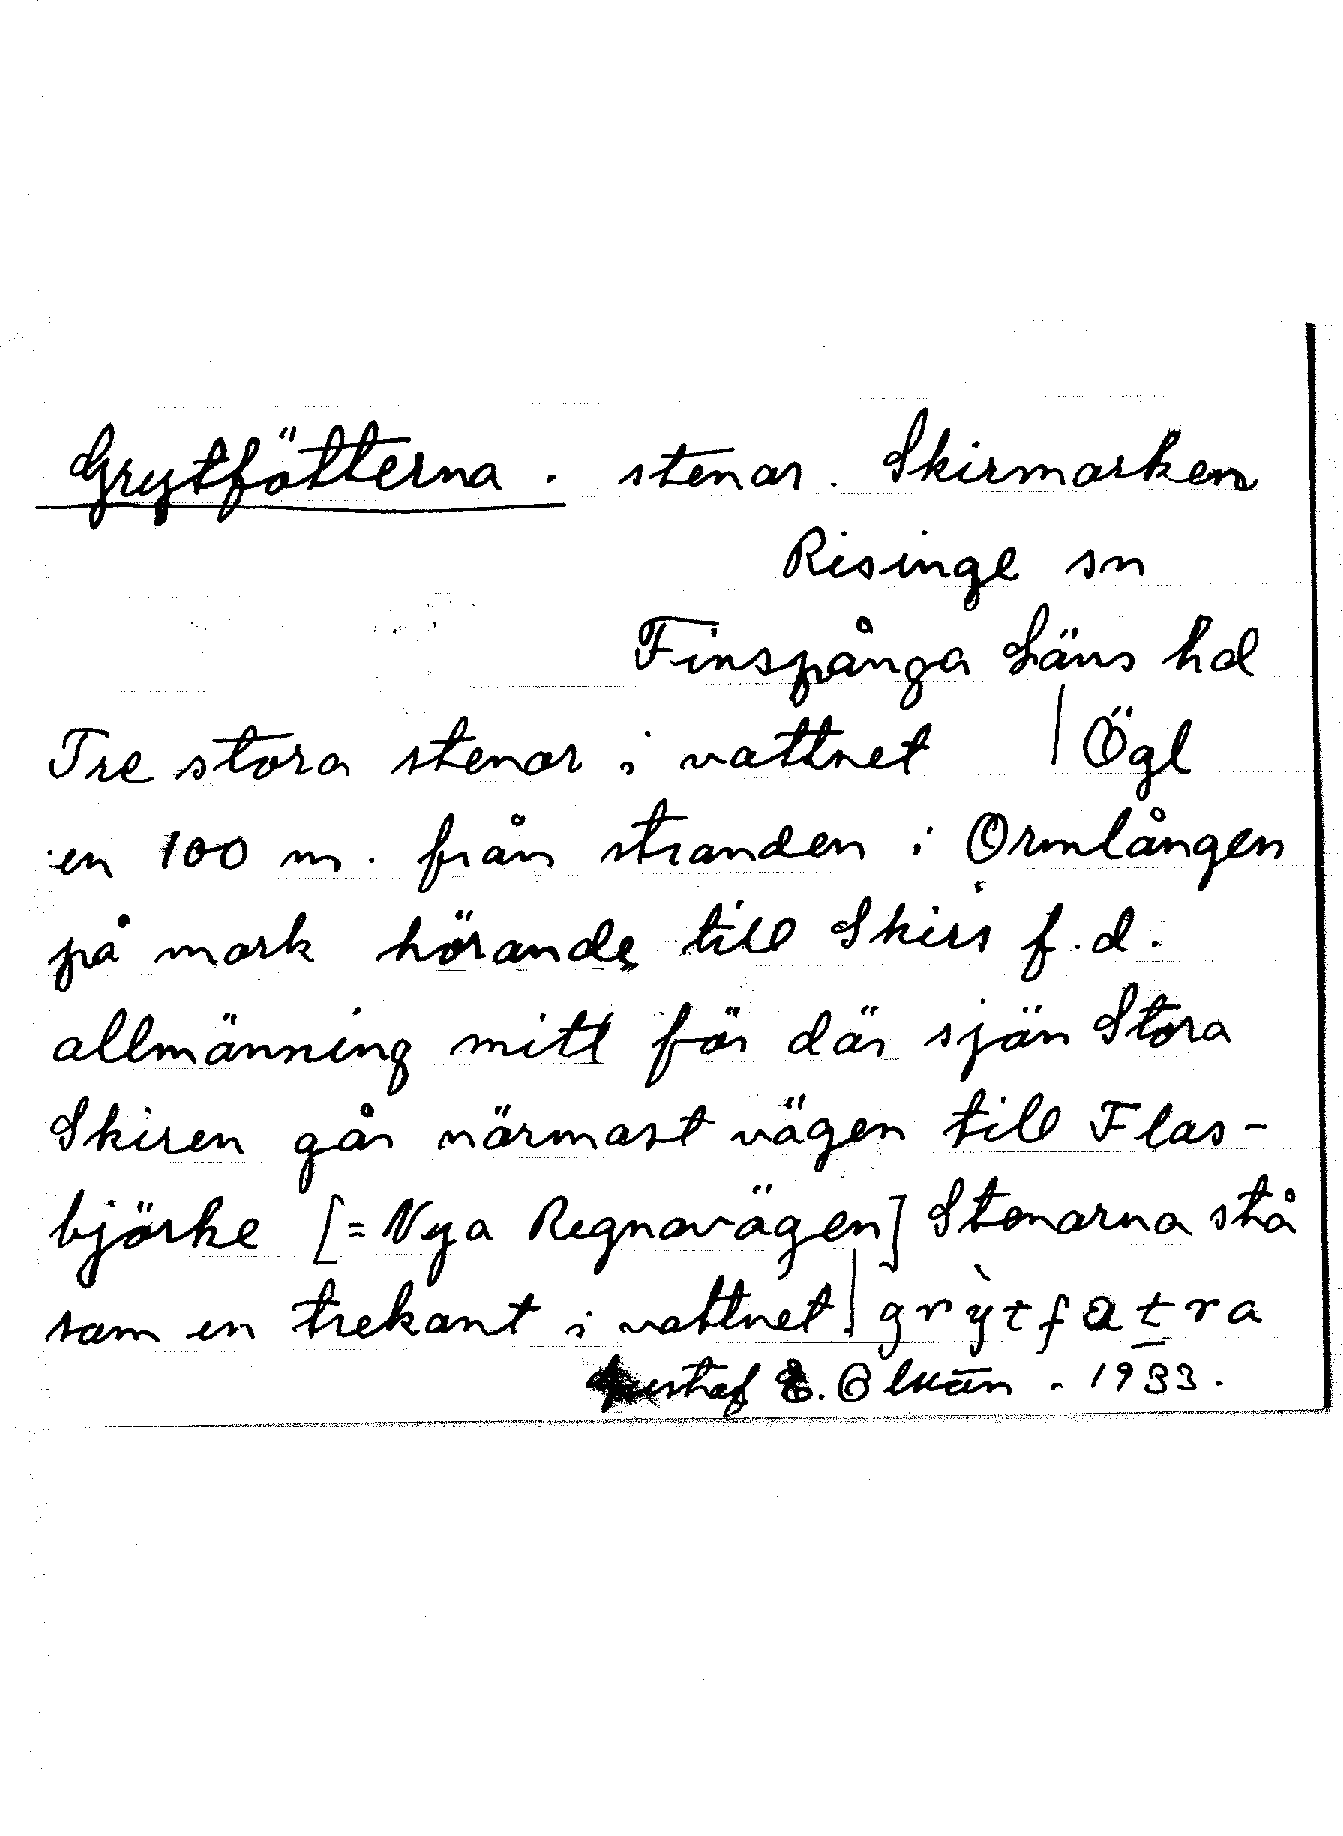 Grytfötterna. stenar. Skirmarken
Risinge sn
Finspånga Läns hd
Tre stora stenar i vattnet | Ögl
en 100 m. från stranden i Ormlången
på mark hörande till Skirs f.d.
allmänning mitt för där sjön Stora
Skiren går närmast vägen till Flas-
björke [= Nya Regnavägen] Stenarna stå
som en trekant i vattnet | 
Gustaf E. 1933.